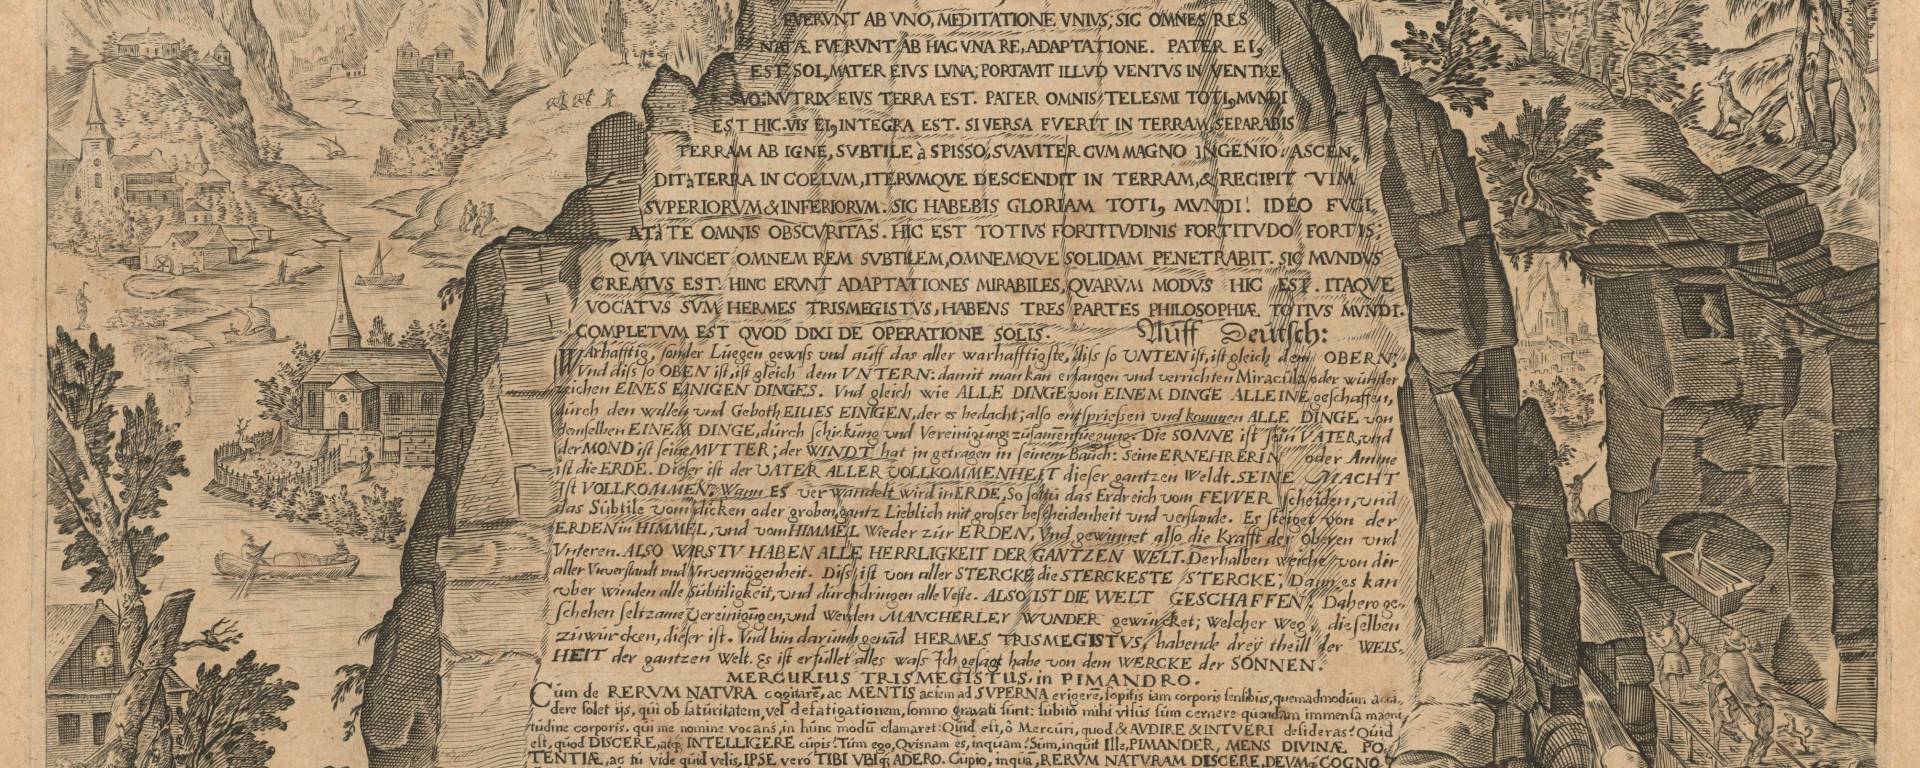 FVERVNT AB VNO, MEDITATIONE VNIVS; SIC OMNES RES
NATÆ FVERVNT AB HAC VNA RE, ADAPTATIONE. PATER EI9
EST SOL, MATER EIVS LVNA; PORTAVIT ILLVD VENTVS IN VENTRE
SVO: NVTRIX EIVS TERRA EST. PATER OMNIS TELESMI TOTI9 MVNDI
EST HIC. VIS EI9 INTEGRA EST. SI VERSA FVERIT IN TERRAM, SEPARABIS
TERRAM AB IGNE, SVBTILE à SPISSO, SVAVITER CVM MAGNO INGENIO: ASCEN„
DIT à TERRA IN COELVM, ITERVMQVE DESCENDIT IN TERRAM, & RECIPIT VIM
SVPERIORVM & INFERIORVM. SIC HABEBIS GLORIAM TOTI9 MVNDI! IDEO FVGI„
AT à TE OMNIS OBSCVRITAS. HIC EST TOTIVS FORTITVDINIS FORTITVDO FORTIS;
QVIA VINCET OMNEM REM SVBTILEM, OMNEMQVE SOLIDAM PENETRABIT. SIC MVNDVS
CREATVS EST. HINC ERVNT ADAPTATIONES MIRABILES, QVARVM MODVS HIC EST. ITAQVE
VOCATVS SVM HERMES TRISMEGISTVS, HABENS TRES PARTES PHILOSOPHIÆ TOTIVS MVNDI.
COMPLETVM EST QVOD DIXI DE OPERATIONE SOLIS. Auff Deutsch:
WArhafftig, sonder Lüegen gewiss vnd auff das aller warhafftigste, diss so UNTEN ist, ist gleich dem OBERN;
Vnd diss so OBEN ist, ist gleich dem VNTERN: damit man kan erlangen vnd verrichten Miracula oder wunder
zeichen EINES EANIGEN DINGES. Vnd gleich wie ALLE DINGE von EINEM DINGE ALLEINE geschaffen,
durch den willen vnd Geboth EINES EINIGEN, der es bedacht; also entspriessen vnd kommen ALLE DINGE von
demselben EINEM DINGE, durch schickung vnd Vereinigung zusammenfuegung. Die SONNE ist sein VATER, vnd
der MOND ist seine MVTTER; der WINDT hat in getragen in seinem Bauch: Seine ERNEHRERIN oder Amme
ist die ERDE. Dieser ist der VATER ALLER VOLLKOMMENHEIT dieser gantzen Weldt. SEINE MACHT
Ist VOLLKOMMEN; Wann ES verwandelt wird in ERDE, So soltu das Erdreich vom FEVVER scheiden, vnd
das Subtile vom dicken oder groben, gantz Lieblich mit grosser bescheidenheit vnd verstande. Es steiget von der
ERDEN in HIMMEL, vnd vom HIMMEL Wieder zur ERDEN, Vnd gewinnet also die Krafft der Oberen vnd
Vnteren. ALSO WIRSTV HABEN ALLE HERRLIGKEIT DER GANTZEN WELT. Derhalben weiche von dir
aller Vnverstandt vnd Vnvermögenheit. Diss ist von aller STERCKE die STERCKESTE STERCKE; Dann es kan
vber winden alle Subtiligkeit, vnd durchdringen alle Veste. ALSO IST DIE WELT GESCHAFFEN. Dahero ge„
schehen seltzame Vereinigungen, vnd Werden MANCHERLEY WUNDER gewürcket; Welcher Weg, dieselben
zu würcken, dieser ist. Vnd bin darumb genand HERMES TRISMEGISTVS, habende drey theill der WEIS„
HEIT der gantzen Welt. Es ist erfüllet alles wass Ich gesagt habe von dem WERCKE der SONNEN.
MERCURIUS TRISMEGISTUS, in PIMANDRO.
Cum de RERVM NATVRA cogitarē, ac MENTIS aciem ad SVPERNA erigerē, sopitis iam corporis sensibus, quemadmodum acci„
dere solet ijs, qui ob saturitatem, vel defatigationem, somno gravati sunt: subito mihi visus sum cernere quendam immensa magni„
tudine corporis, qui me nomine vocans, in hunc modū clamaret: Quid est, ô Mercuri, quod & AVDIRE & INTVERI desideras? Quid
est, quod DISCERE, atq; INTELLIGERE cupis? Tum ego, Quisnam es, inquam? Sum, inquit Ille, PIMANDER, MENS DIVINÆ PO„
TENTIÆ, ac tu vide quid velis, IPSE vero TIBI VBIQ; ADERO. Cupio, inquā, RERVM NATURAM DISCERE, DEVMQ; COGNO„